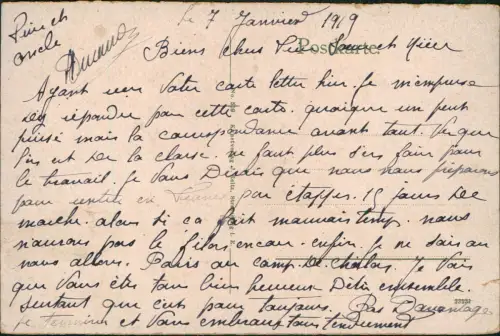 le 7 Janvier 1919
oncle
Biens chers
Postkarte
Ayant reçu Votre carte letter hier. Je m'empresse
D'y répondre par cette carte. quoique un peut
mais la correspondance avant tout. Vu que
l'on est De la classe. ne faut plus s'en faire pour
le travail. je Vous Dirais que nous nous préparons
pour rentrer en France par étappes. 15 jours De
marche. alors si ca fait mauvais temp. nous
n'aurons pas le filon encore. enfin. je ne sais ou
nous allons. Paris ou camp De chalons. Je Vois
que Vous êtes tous bien heureux D'etre ensemble.
surtout que c'est pour toujours. Pas Davantage
je termine et Vous embrasse tous tendrement